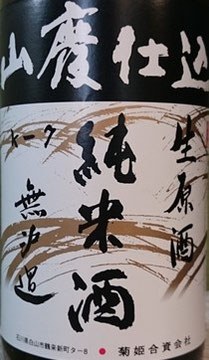 山廃仕込
生原酒
純米酒
トーク
無沪過
石川県白山市鶴来新町タ-8
菊姫合資会社